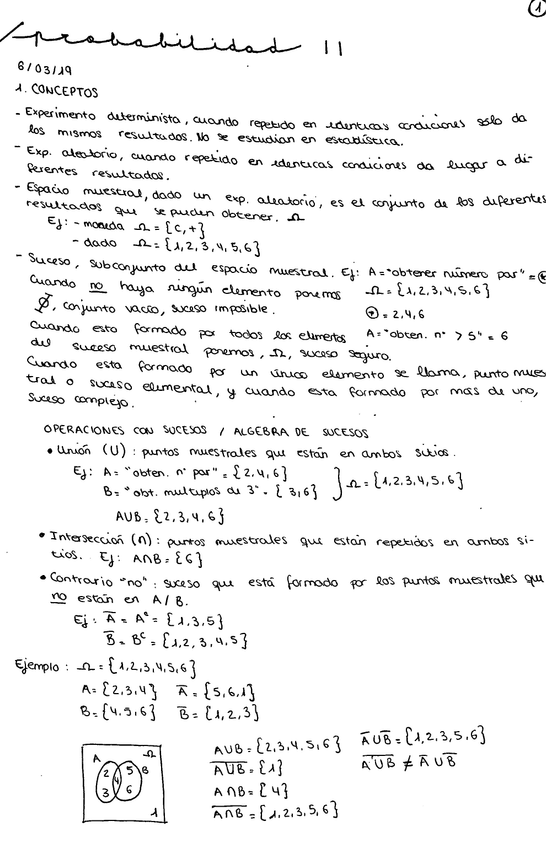 1
probabilidad II
6/03/19
1. CONCEPTOS
- Experimento determinista, cuando repetido en identicas condiciones solo da
los mismos resultados. No se estudian en estadística.
- Exp. aleatorio, cuando repetido en identicas condiciones da lugar a di-
ferentes resultados.
- Espacio muestral, dado un exp. aleatorio, es el conjunto de los diferentes
resultados que se pueden obtener. Ω
Ej: - moneda Ω = {C,+}
- dado Ω = {1,2,3,4,5,6}
- Suceso, subconjunto del espacio muestral. Ej: A = "obtener número par" =
Cuando no haya ningún elemento ponemos Ω = {1,2,3,4,5,6}
Ø, conjunto vacío, suceso imposible. = 2,4,6
Cuando esto formado por todos los elementos A = "obten. nº > 5" = 6
del suceso muestral ponemos, Ω, suceso seguro.
Cuando esta formado por un único elemento se llama, punto mues
tral o suceso elemental, y cuando esta formado por más de uno,
suceso complejo.
OPERACIONES CON SUCESOS / ALGEBRA DE SUCESOS
• Unión (U) : puntos muestrales que están en ambos sitios.
Ej: A = "obten. nº par" = {2,4,6} } Ω = {1,2,3,4,5,6}
B = "obt. multiplos de 3" = {3,6}
AUB = {2,3,4,6}
• Intersección (∩) : puntos muestrales que están repetidos en ambos si-
tios. Ej: A∩B = {6}
• Contrario "no" : suceso que está formado por los puntos muestrales que
no están en A/B.
Ej: A̅ = Aᶜ = {1,3,5}
B̅ = Bᶜ = {1,2,3,4,5}
Ejemplo : Ω = {1,2,3,4,5,6}
A = {2,3,4} A̅ = {5,6,1}
B = {4,5,6} B̅ = {1,2,3}
A Ω
2 4 5 B
3 6
1
AUB = {2,3,4,5,6} A̅UB̅ = {1,2,3,5,6}
A̅U̅B̅ = {1} A̅U̅B̅ ≠ A̅ U B̅
A∩B = {4}
A̅∩̅B̅ = {1,2,3,5,6}